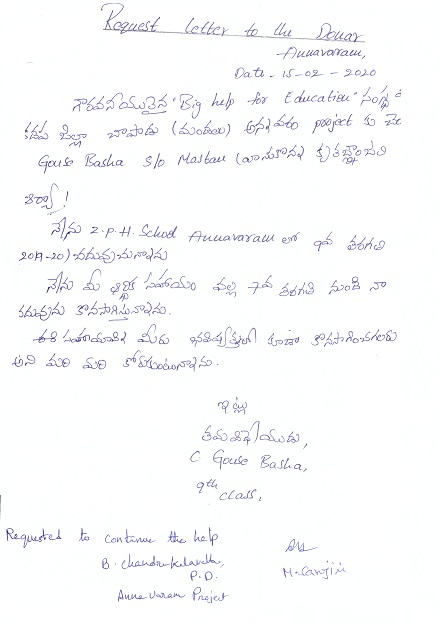 Request letter to the Donar
Annavaram,
Date - 15-02-2020
గౌరవనీయులైన "Big help for Education" సంస్థ కి
కడప జిల్లా చాపాడు (మండలం) అన్నవరం project కు చెం
Gouse Basha S/o Mastan వ్రాసుకొన్న కృతజ్ఞతాంజలి
ఆర్యా!
నేను Z.P.H. School Annavaram లో 9వ తరగతి
2019-20) చదువుచున్నాను
నేను మీ ఆర్థిక సహాయం వల్ల 7వ తరగతి నుండి నా
చదువును కొనసాగిస్తున్నాను.
ఈ సహాయాన్ని మీరు భవిష్యత్తులో కూడా కొనసాగించగలరు
అని మరి మరి కోరుకుంటున్నాను.
ఇట్లు
తమ విధేయుడు,
C Gouse Basha,
9th class.
Requested to continue the help
B. Chandrakalavathi,
P.D.
Annavaram Project